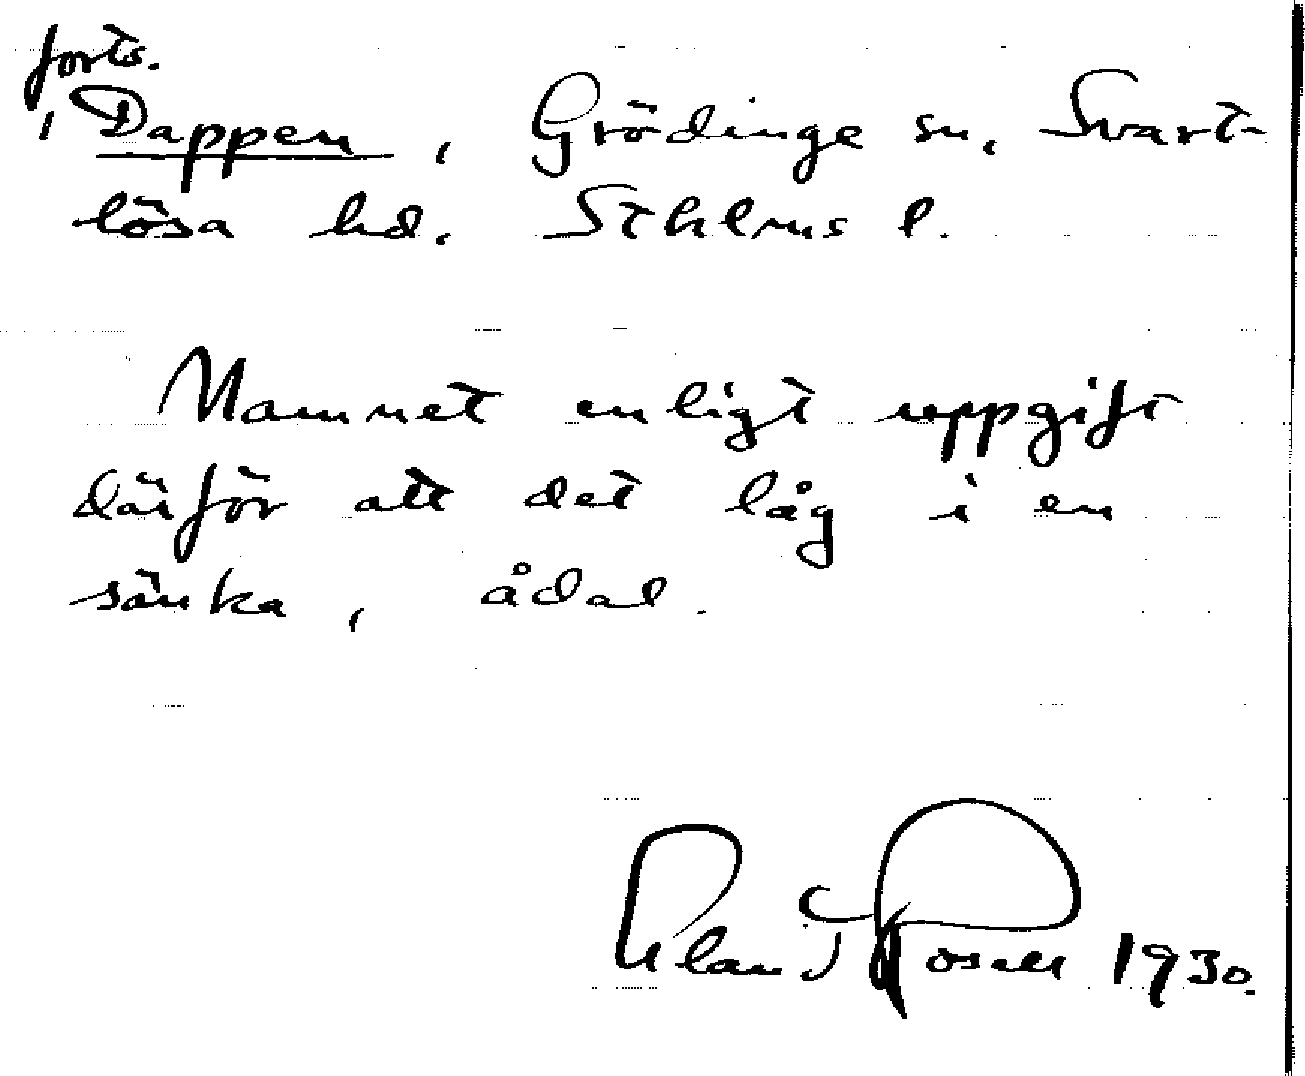 forts.
, Dappen, Grödinge sn, Svart-
lösa hd. Sthlms l.
Namnet enligt uppgift
därför att det låg i en
sänka, ådal.
1930.